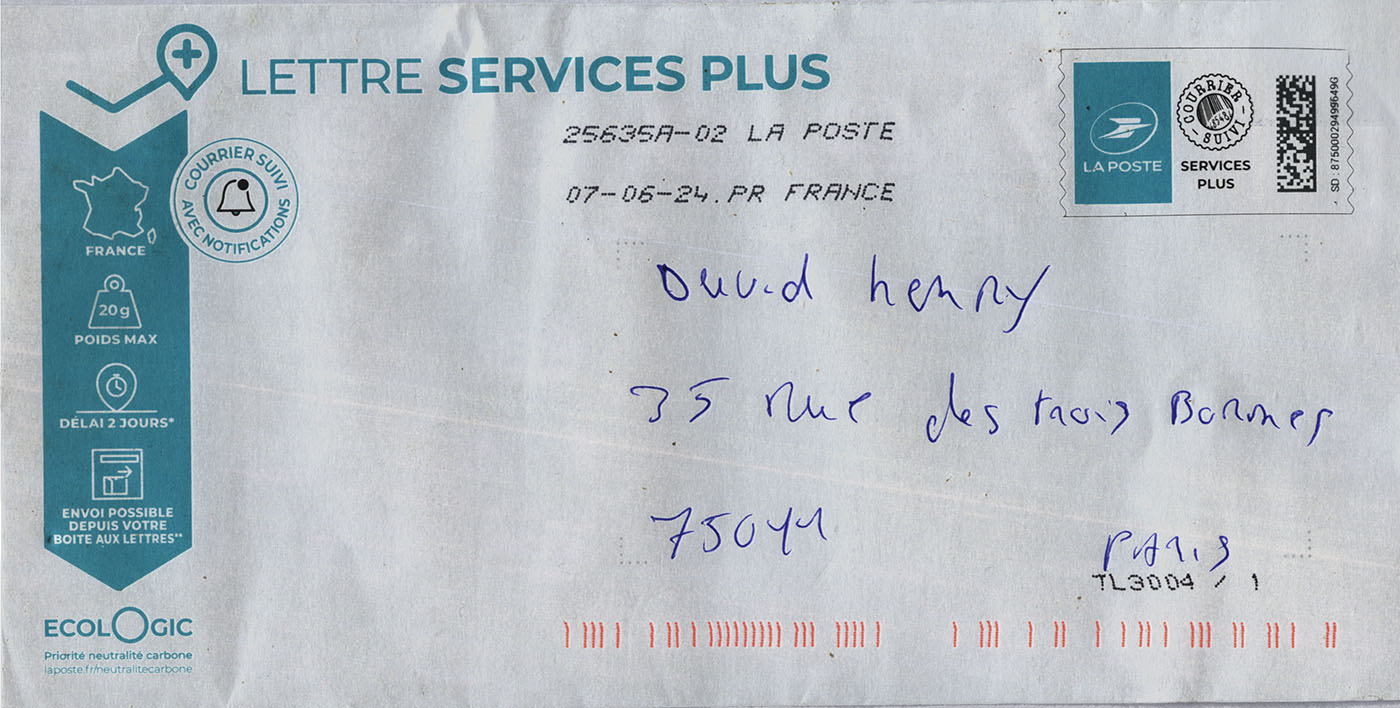 LETTRE SERVICES PLUS
25635A-02 LA POSTE
07-06-24.PR FRANCE
LA POSTE
COURRIER SUIVI
SERVICES
PLUS
SD : 87500029499649G
COURRIER SUIVI
AVEC NOTIFICATIONS
FRANCE
20 g
POIDS MAX
DÉLAI 2 JOURS*
ENVOI POSSIBLE
DEPUIS VOTRE
BOITE AUX LETTRES**
ECOLOGIC
Priorité neutralité carbone
laposte.fr/neutralitecarbone
David henry
35 Rue des trois Bornes
75011 PARIS
TL3004 / 1